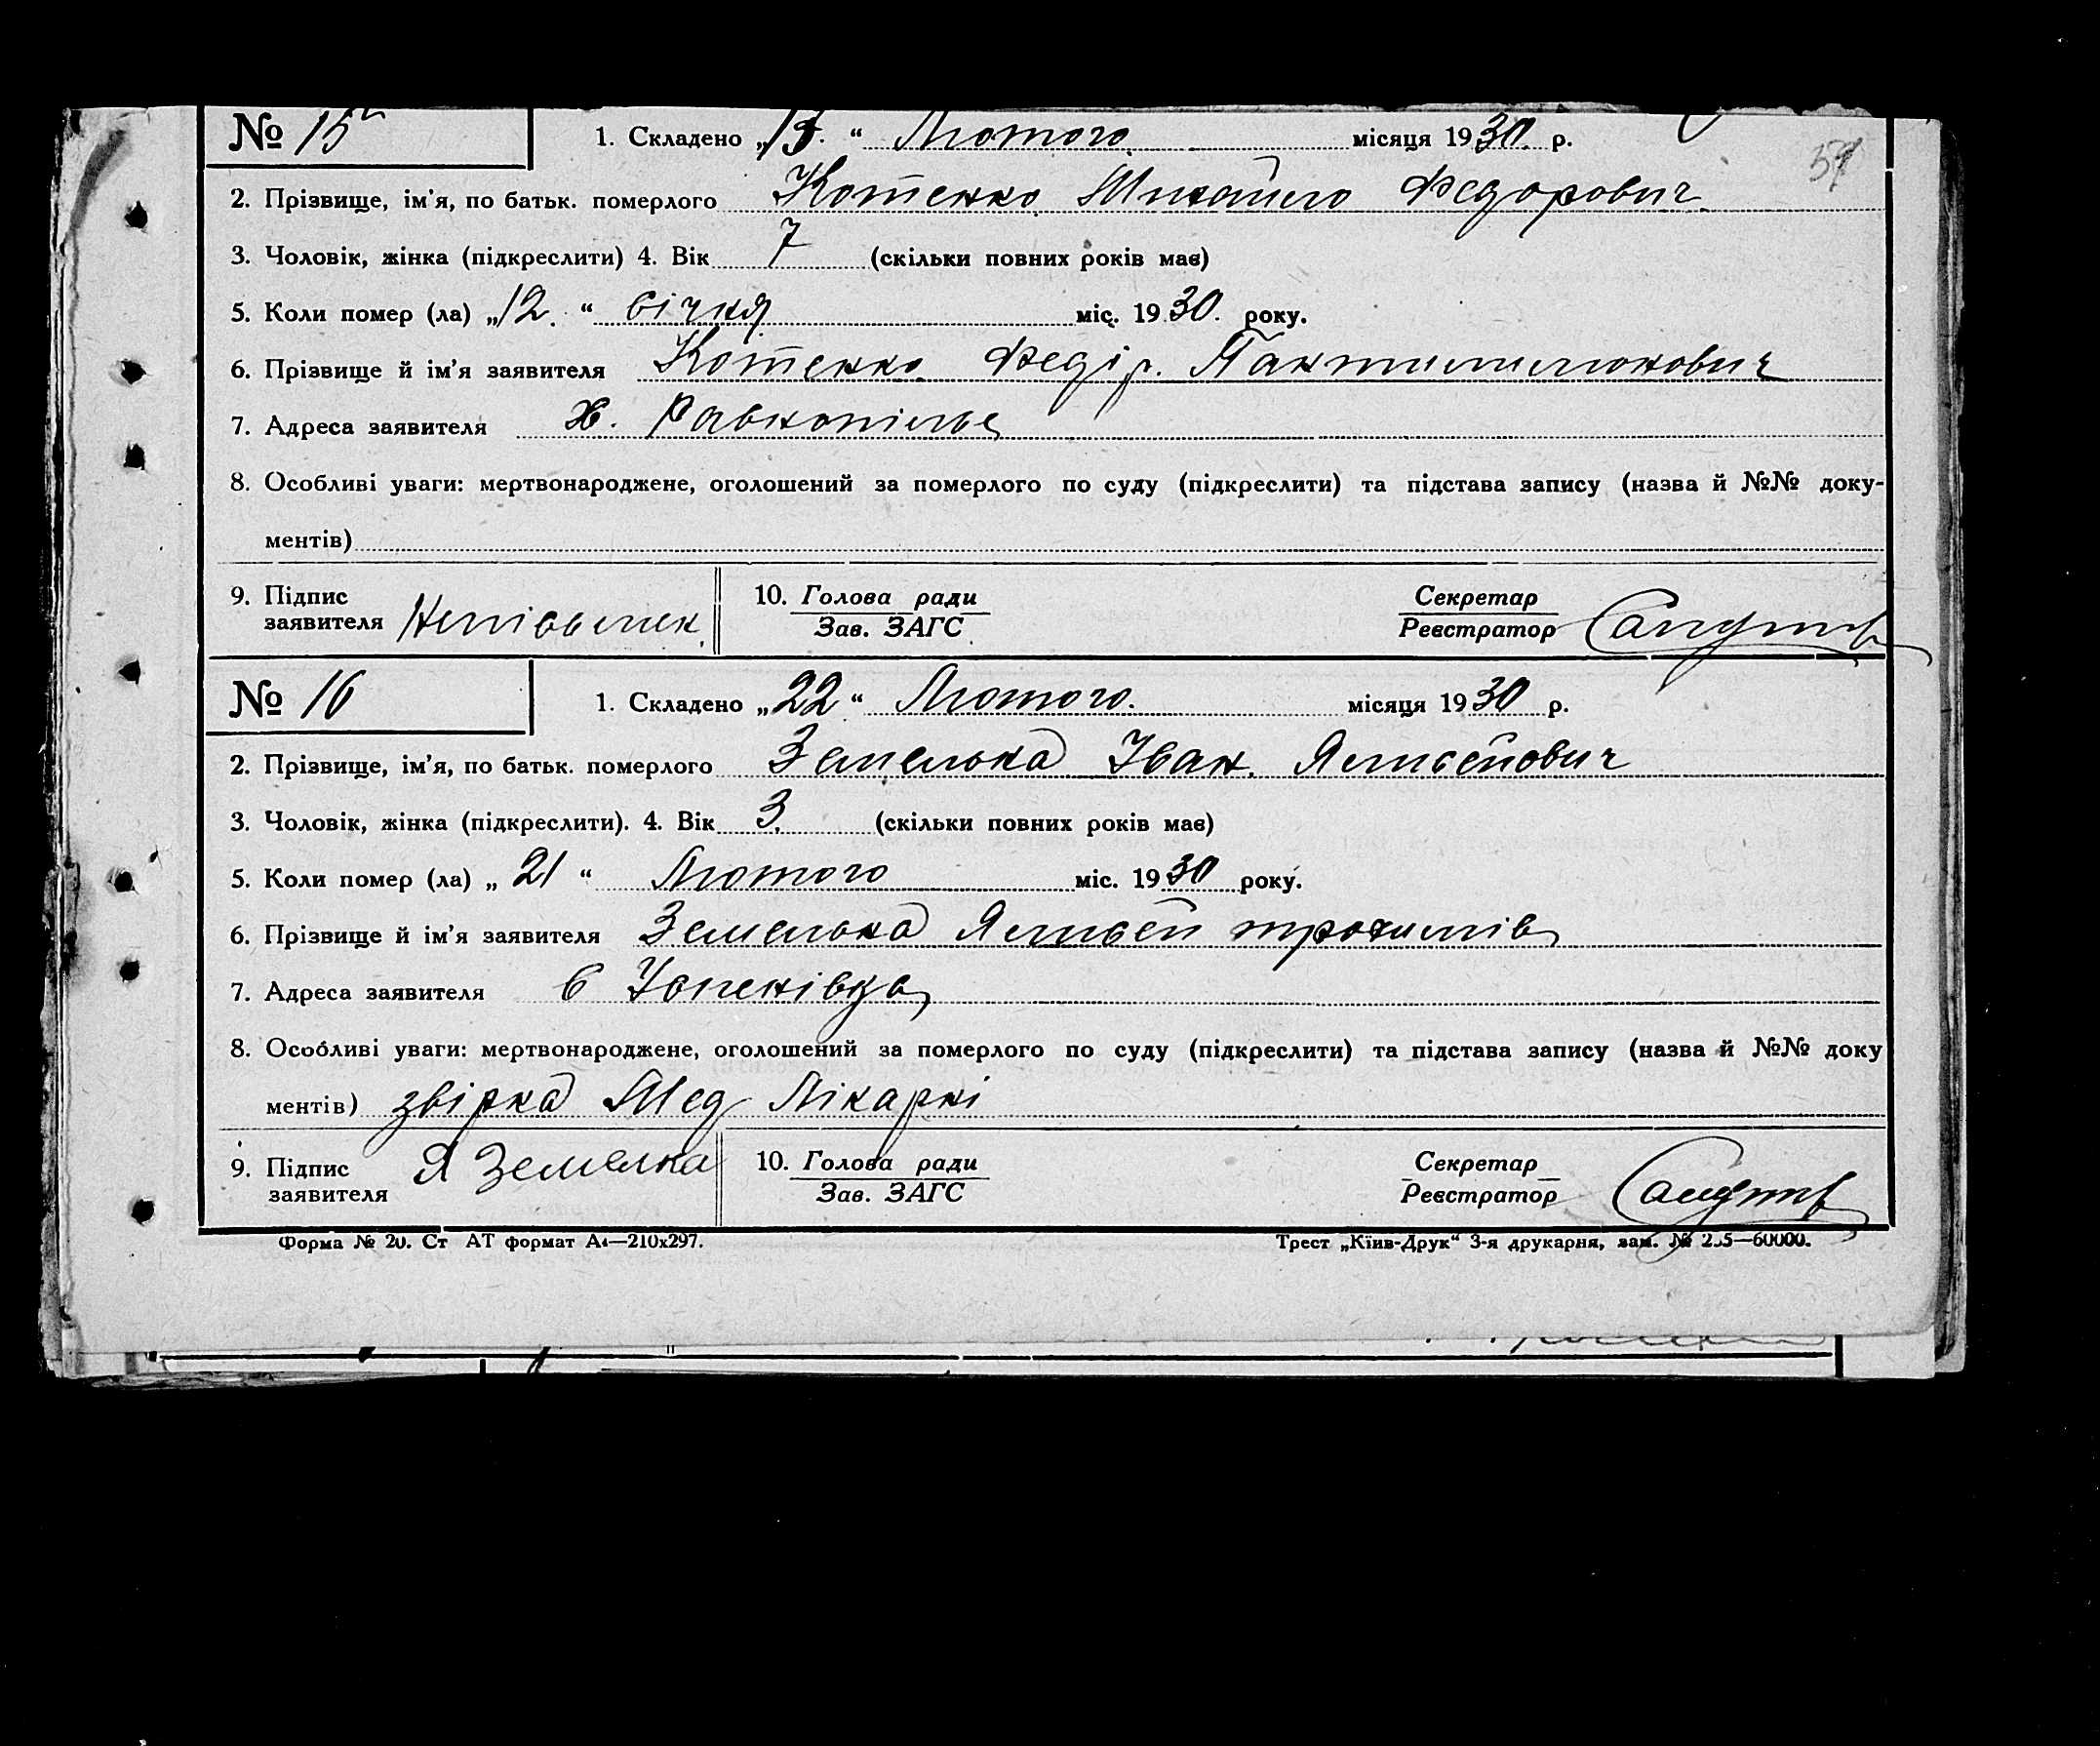 № 15 1. Складено „15.“ Лютого. місяця 1930. р.
2. Прізвище, ім'я, по батьк. померлого Котенко Михайло Федорович.
3. Чоловік, жінка (підкреслити) 4. Вік 7 (скільки повних років має)
5. Коли помер (ла) „12.“ січня міс. 1930. року.
6. Прізвище й ім'я заявителя Котенко Федір.
7. Адреса заявителя х. Равнопілье
8. Особливі уваги: мертвонароджене, оголошений за померлого по суду (підкреслити) та підстава запису (назва й №№ доку-
ментів)
9. Підпис заявителя 10. Голова ради Зав. ЗАГС Секретар Реєстратор
№ 16 1. Складено „22“ Лютого. місяця 1930 р.
2. Прізвище, ім'я, по батьк. померлого Земелька Іван.
3. Чоловік, жінка (підкреслити). 4. Вік 3. (скільки повних років має)
5. Коли помер (ла) „21“ Лютого міс. 1930 року.
6. Прізвище й ім'я заявителя Земелька
7. Адреса заявителя с
8. Особливі уваги: мертвонароджене, оголошений за померлого по суду (підкреслити) та підстава запису (назва й №№ доку
ментів) звірка Мед Лікаркі
9. Підпис заявителя Я Земелка 10. Голова ради Зав. ЗАГС Секретар Реєстратор
Форма № 20. Ст АТ формат А4—210х297. Трест „Київ-Друк“ 3-я друкарня, зам.